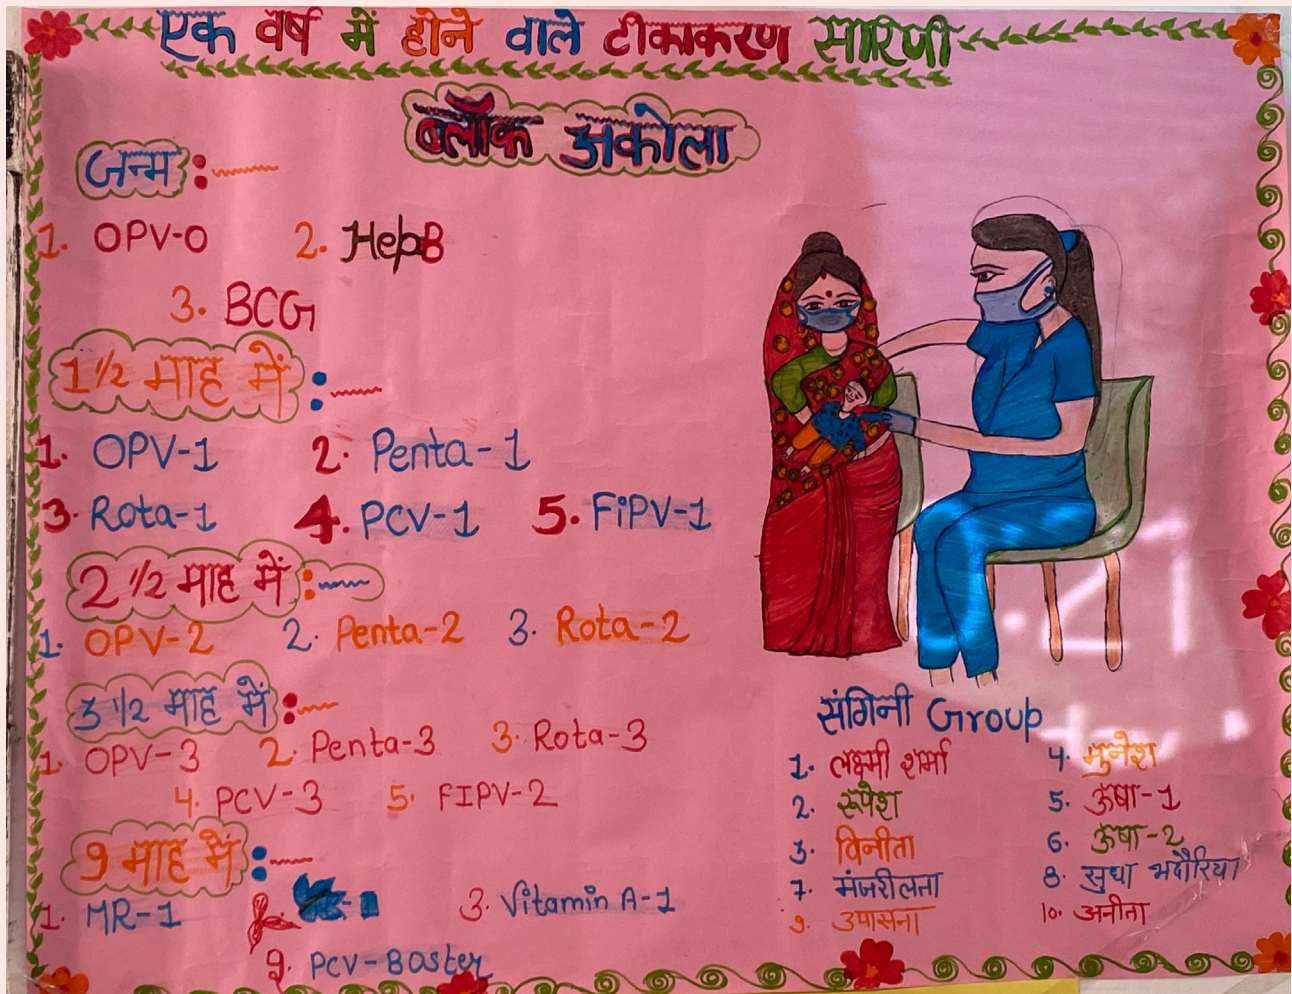 एक वर्ष में होने वाले टीकाकरण सारिणी
ब्लॉक अकोला
जन्म :
1. OPV-0 2. HepB
3. BCG
1 1/2 माह में :
1. OPV-1 2. Penta-1
3. Rota-1 4. PCV-1 5. FiPV-1
2 1/2 माह में :
1. OPV-2 2. Penta-2 3. Rota-2
3 1/2 माह में :
1. OPV-3 2. Penta-3 3. Rota-3
4. PCV-3 5. FIPV-2
9 माह में :
1. MR-1 3. Vitamin A-1
9. PCV-Boster
संगिनी Group
1. लक्ष्मी शर्मा 4. मुनेश
2. रूपेश 5. ऊषा-1
3. विनीता 6. ऊषा-2
7. मंजरीलता 8. सुधा भदौरिया
9. उपासना 10. अनीता